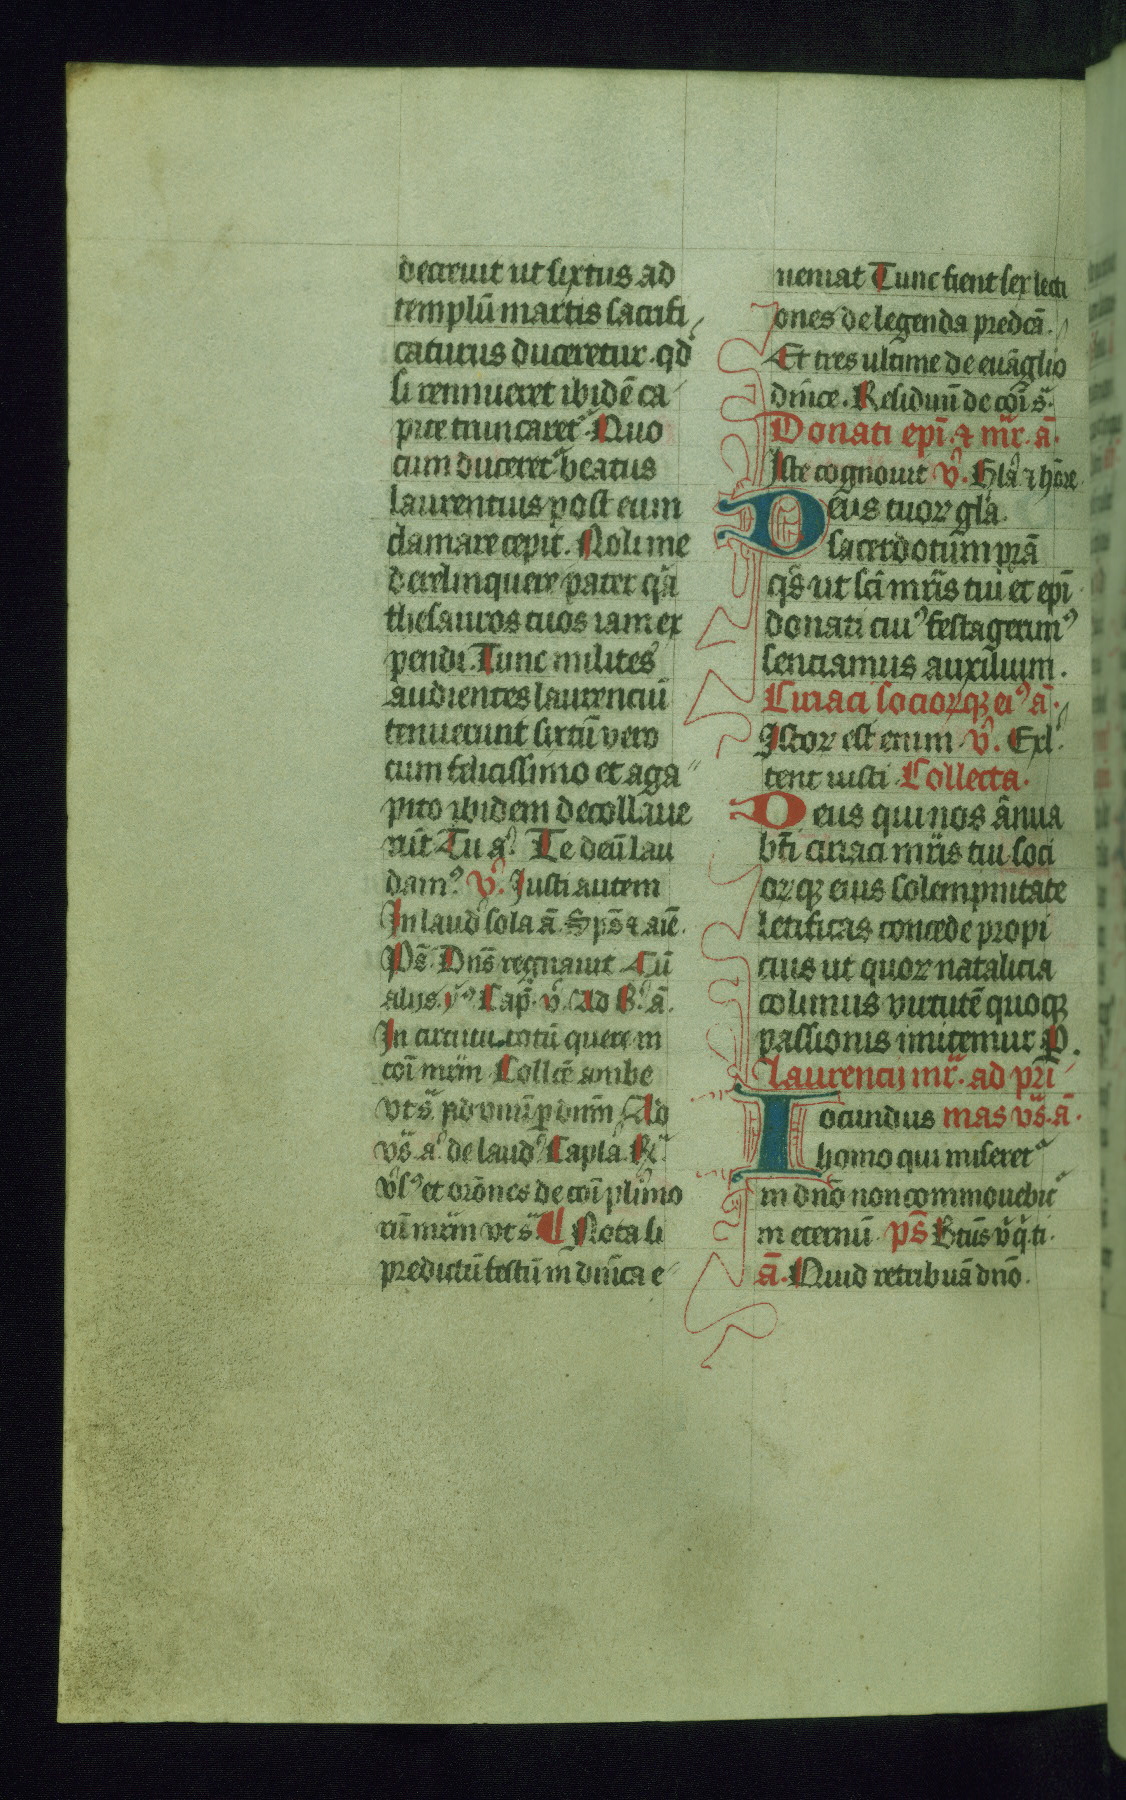 decreuit ut sixtus ad
templū martis sacrifi
caturus duceretur. qd
si rennueret ibidē ca
pite truncaret Quo
cum duceret beatus
laurentius post eum
clamare cepit. Noli me
derelinquere pater qͣa
thesauros tuos iam ex
pendi. Tunc milites
audientes laurenciū
tenuerunt sixtū vero
cum felicissimo et aga
pito ibidem decollaue
rūt Tu a. Te deū lau
dam⁹ v̊. Justi autem
In laud sola ā Sps̄ ⁊ aīe.
Ps̄. Dn̄s regnauit Cū
alijs. Cap̄. v̊. Ad B. ā.
In circuitu totū quere in
coī mr̄m Collc̄ ambe
vt sͣ. ad vnū p dnm̄ Ad
vs̄. a de laud Capla R
vl et orōnes de coī plimo
rū mr̄m vt sͣ. Nota si
predictū festū in dnīca e
ueniat Tunc fient sex lecti
ones de legenda predcā.
Et tres ultime de euāglio
dnīce. Residuū de coī sͣ.
Donati epī ⁊ mr̄. ā.
Iste cognouit v̊. Gla ⁊ hōre
Deus tuoꝝ gla
sacerdotūm prā
qs̄ ut scī mr̄is tui et epī
donati cui⁹ festa gerim⁹
senciamus auxilium.
Ciriaci socioꝝqꝫ ei⁹ ā.
Istoꝝ est enim v̊. Exl
tent iusti. Collecta.
Deus qui nos ānua
bt̄i ciriaci mr̄is tui soci
oꝝqꝫ eius solempnitate
letificas concede propi
cius ut quoꝝ natalicia
colimus virtutē quoqꝫ
passionis imitemur P.
Laurencij mr̄. ad pri
Iocundus mas vs̄. ā.
homo qui miseret
in dnō non commouebit
in eternū ps̄ Btūs v̊ q̄ ti.
ā. Quid retribuā dnō.